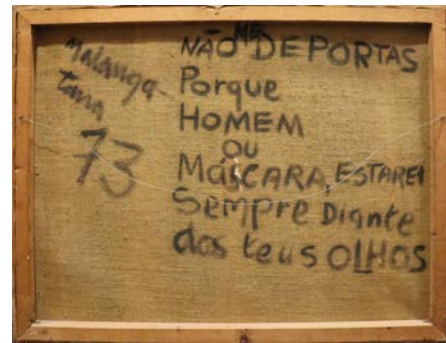 Malanga
tana
73
NÃO ME DEPORTAS
Porque
HOMEM
OU
MÁSCARA, ESTAREI
Sempre Diante
dos teus OLHOS